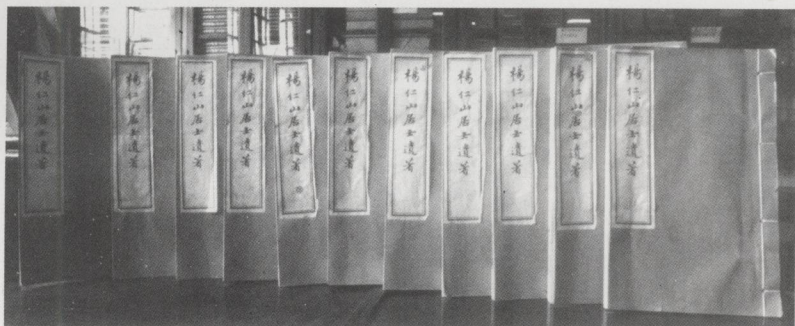 楊仁山居士遺著
楊仁山居士遺著
楊仁山居士遺著
楊仁山居士遺著
楊仁山居士遺著
楊仁山居士遺著
楊仁山居士遺著
楊仁山居士遺著
楊仁山居士遺著
楊仁山居士遺著
楊仁山居士遺著